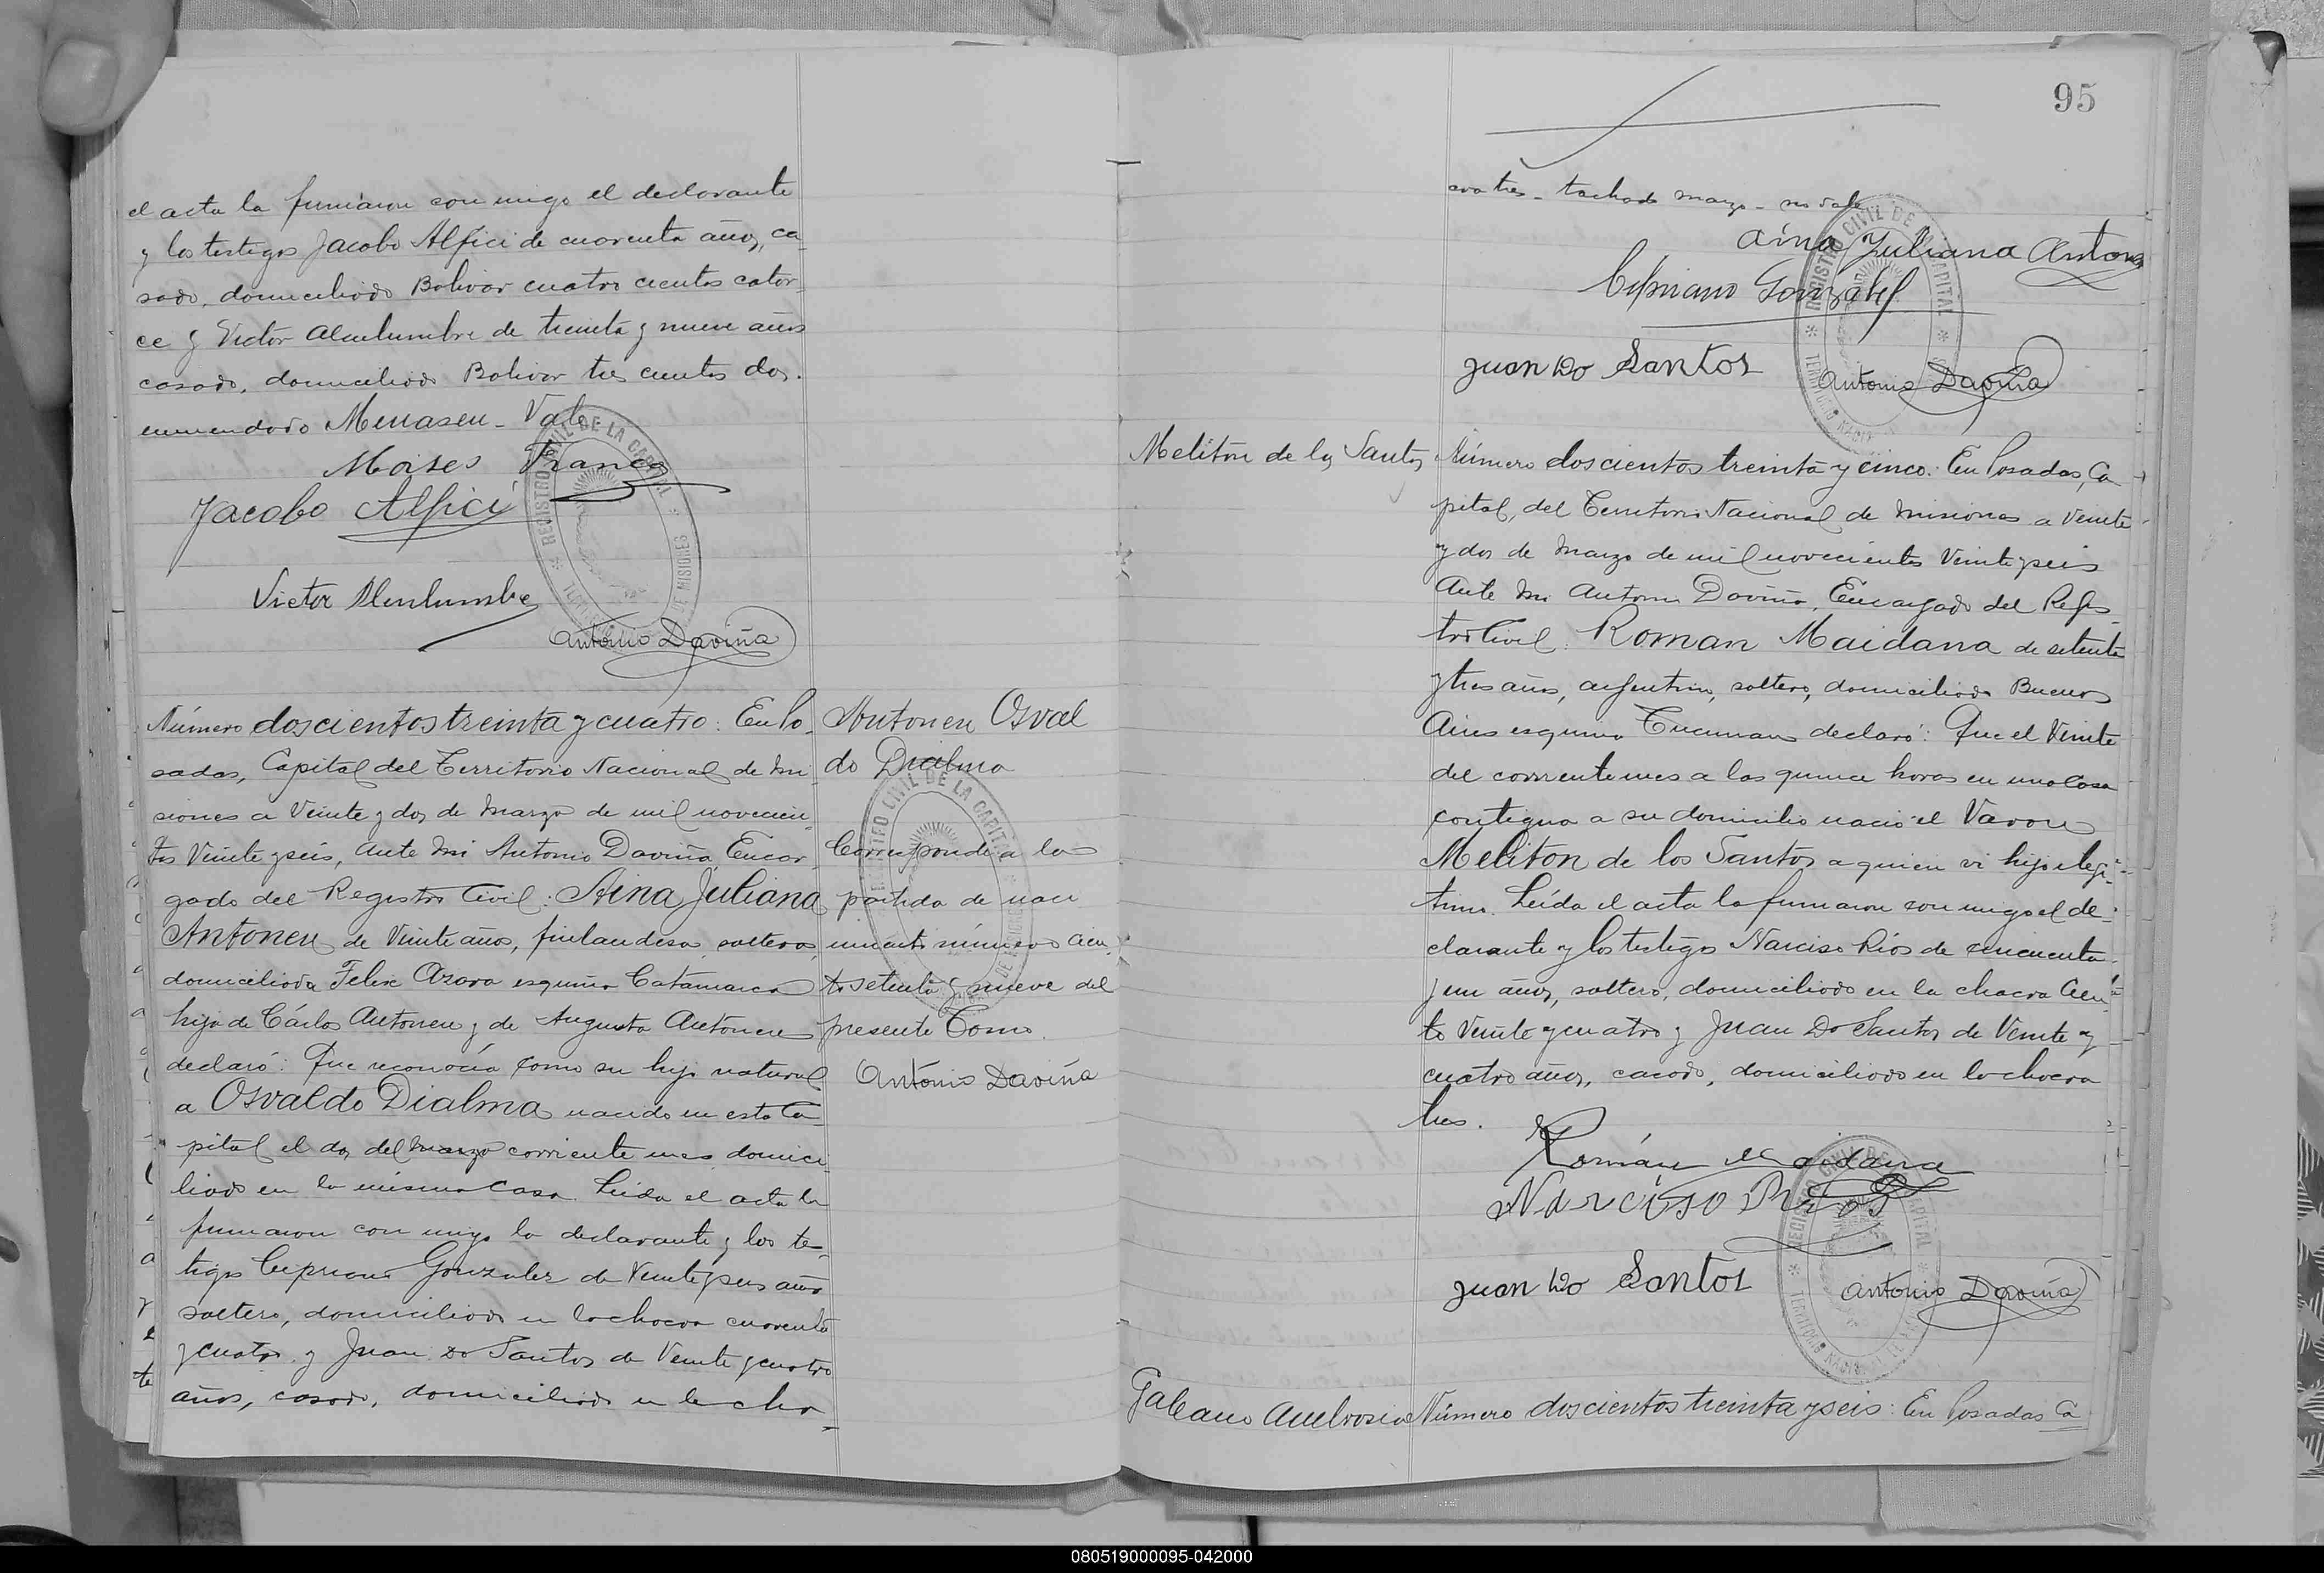 el acta la firmaron con migo el declarante
y los testigos Jacobo Alfici de cuarenta años, ca-
sado, domiciliado Bolivar cuatro cientos cator-
ce y Victor Alculumbre de treinta y nueve años
casado, domiciliado Bolivar tres cientos dos.
enmendado Menasen - Vale
Moises Franco
Jacobo Alfici
Victor Alculumbre
Antonio Daviña
Número doscientos treinta y cuatro: En Po-
sadas, Capital del Territorio Nacional de Mi-
siones a Veinte y dos de Marzo de mil novecien-
tos Veinte y seis, Ante Mi Antonio Daviña, Encar-
gado del Registro Civil: Aina Juliana
Antonen de Veinte años, finlandesa, soltera,
domiciliada Felix Azara esquina Catamarca
hija de Cárlos Antonen y de Augusta Antonen
declaró: Que reconocía como su hijo natural
a Osvaldo Dialma nacido en esta Ca-
pital el dos del Marzo corriente mes domici-
liado en la misma Casa. Leida el acta la
firmaron con migo la declarante y los tes-
tigos Cipriano Gonzalez de Veinte y seis años
soltero, domiciliado en la chacra cuarenta
y cuatro y Juan Do Santos de Veinte y cuatro
años, casado, domiciliado en la cha-
Antonen Osval
do Dialma
Corresponde a la
partida de naci
miento número cien
to setenta y nueve del
presente Tomo.
Antonio Daviña
95
cra tres - tachado marzo - no vale
Aina Juliana Antonen
Cipriano Gonzalez
Juan Do Santos
Antonio Daviña
Meliton de los Santos
Número doscientos treinta y cinco: En Posadas, Ca-
pital, del Territorio Nacional de Misiones a Veinte
y dos de Marzo de mil novecientos Veinte y seis
Ante Mi Antonio Daviña, Encargado del Regis-
tro Civil: Roman Maidana de setenta
y tres años, argentino, soltero, domiciliado Buenos
Aires esquina Tucuman declaró: Que el Veinte
del corriente mes a las quince horas en una Casa
contigua a su domicilio nació el Varon
Meliton de los Santos a quien vi hijo ilegi-
timo. Leída el acta la firmaron con migo el de-
clarante y los testigos Narciso Ríos de cincuenta
y un años, soltero, domiciliado en la chacra Cien-
to Veinte y cuatro y Juan Do Santos de Veinte y
cuatro años, casado, domiciliado en la chacra
tres.
Román Maidana
Narciso Rios
Juan Do Santos
Antonio Daviña
Galeano Ambrosio
Número doscientos treinta y seis: En Posadas Ca
REGISTRO CIVIL DE LA CAPITAL
080519000095-042000